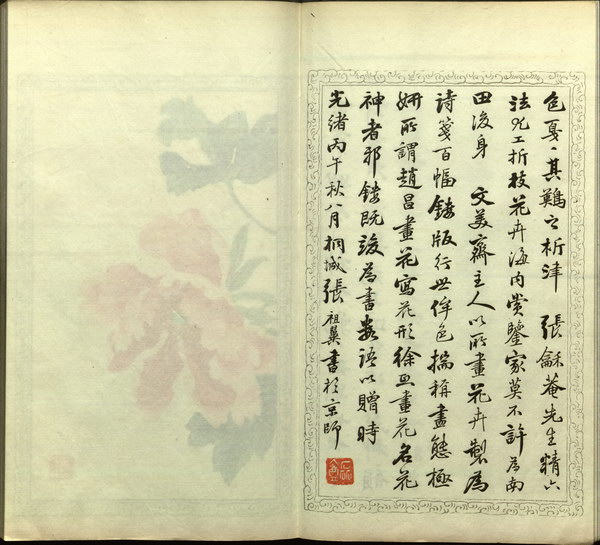 色戛〻其難之析津　張龢菴先生精六
法尤工折枝花卉海內賞鑒家莫不許為南
田後身　文美齋主人以所畫花卉製為
詩箋百幅鏤版行世侔色揣稱盡態極
妍所謂趙昌畫花寫花形徐熙畫花名花
神者邪鏤既竣為書數語以贈時
光緒丙午秋八月桐城張祖翼書於京師